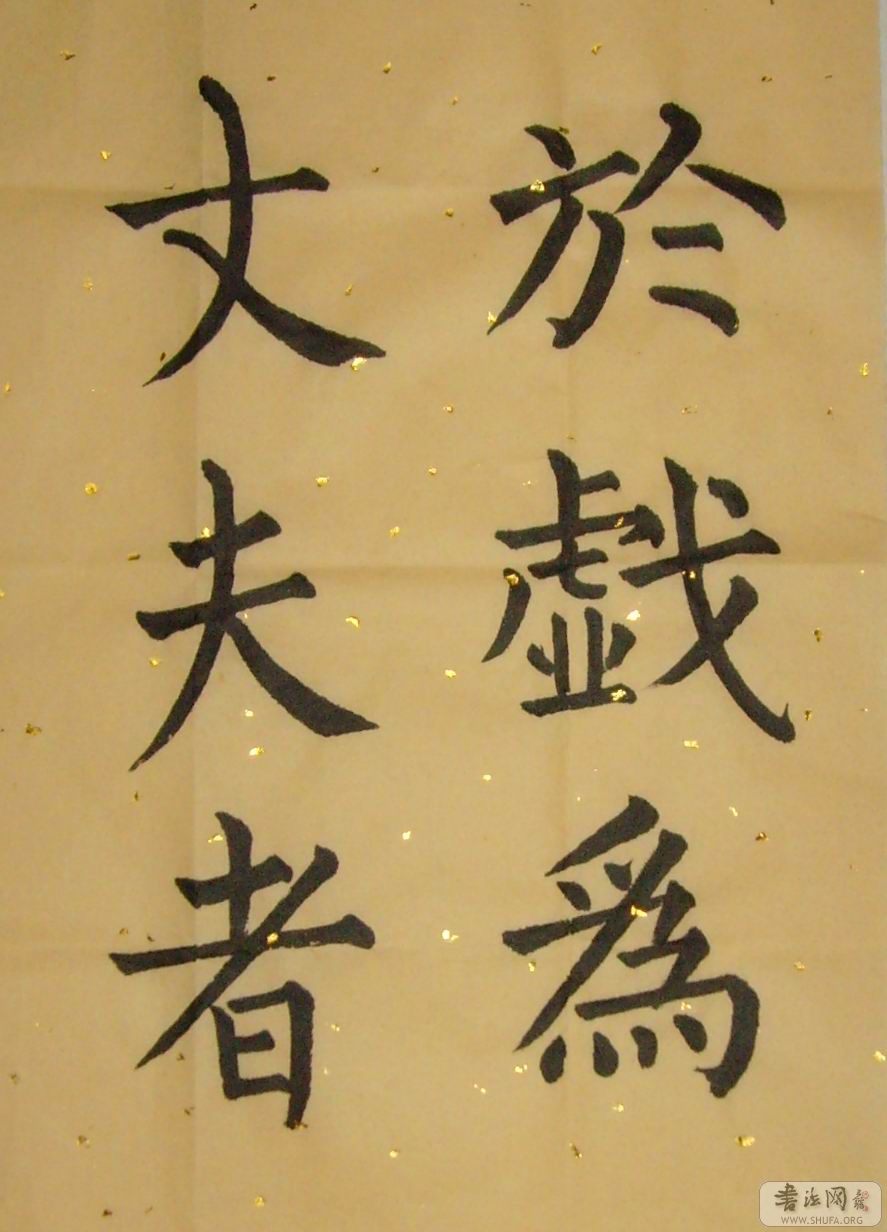 於戯為
丈夫者
书法网
WWW.SHUFA.ORG